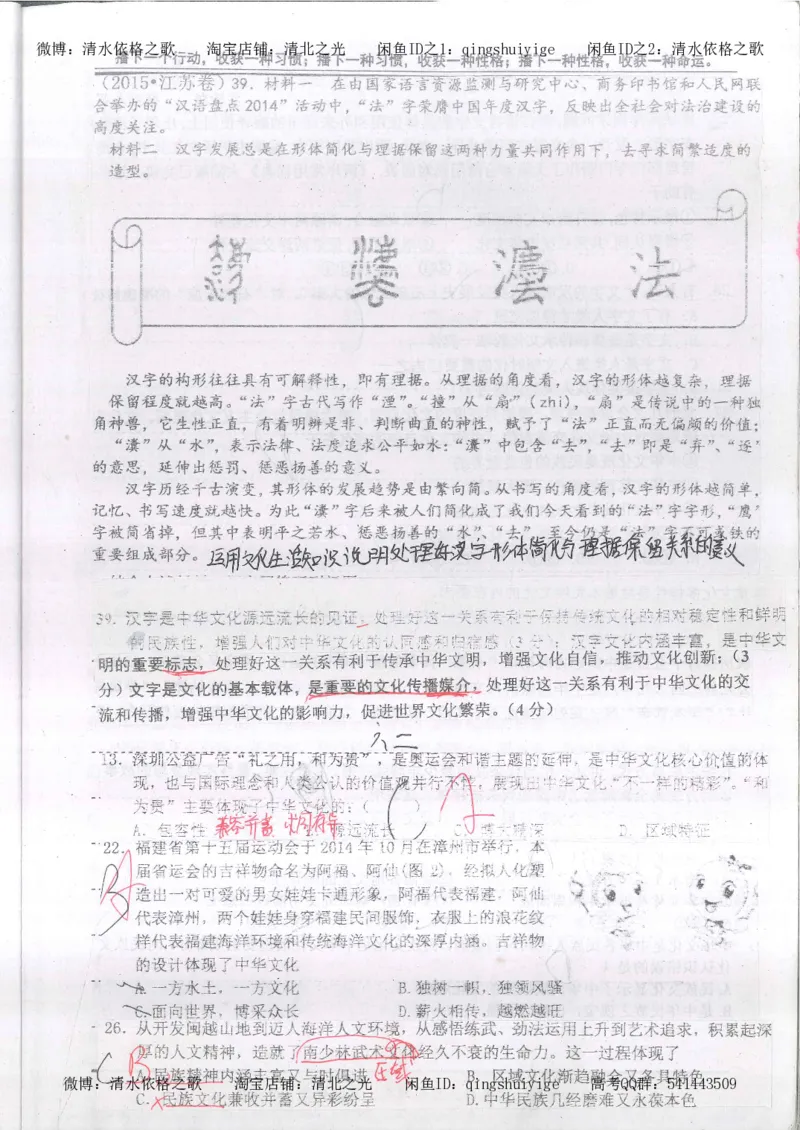 微博：清水依格之歌 淘宝店铺：清北之光 闲鱼ID之1：qingshuiyige 闲鱼ID之2：清水依格之歌
播下一个行动，收获一种习惯；播下一种习惯，收获一种性格；播下一种性格，收获一种命运。
（2015•江苏卷）39．材料一 在由国家语言资源监测与研究中心、商务印书馆和人民网联
合举办的“汉语盘点2014”活动中，“法”字荣膺中国年度汉字，反映出全社会对法治建设的
高度关注。
材料二 汉字发展总是在形体简化与理据保留这两种力量共同作用下，去寻求简繁适度的
造型。
灋 法
汉字的构形往往具有可解释性，即有理据。从理据的角度看，汉字的形体越复杂，理据
保留程度就越高。“法”字古代写作“湮”。“撞”从“扇”（zhi），“扇”是传说中的一种独
角神兽，它生性正直，有着明辨是非、判断曲直的神性，赋予了“法”正直而无偏颇的价值；
“灋”从“水”，表示法律、法度追求公平如水：“灋”中包含“去”，“去”即是“弃”、“逐”
的意思，延伸出惩罚、惩恶扬善的意义。
汉字历经千古演变，其形体的发展趋势是由繁向简。从书写的角度看，汉字的形体越简单，
记忆、书写速度就越快。为此“灋”字后来被人们简化成了我们今天看到的“法”字字形，“廌”
字被简省掉，但其中表明平之若水、惩恶扬善的“水”、“去”至今仍是“法”字不可或缺的
重要组成部分。运用文化生活知识说明处理好汉字形体简化与理据保留关系的意义
39．汉字是中华文化源远流长的见证，处理好这一关系有利于保持传统文化的相对稳定性和鲜明
的民族性，增强人们对中华文化的认同感和归宿感（3分）；汉字文化内涵丰富，是中华文
明的重要标志，处理好这一关系有利于传承中华文明，增强文化自信，推动文化创新；（3
分）文字是文化的基本载体，是重要的文化传播媒介，处理好这一关系有利于中华文化的交
流和传播，增强中华文化的影响力，促进世界文化繁荣。（4分）
13．深圳公益广告“礼之用，和为贵”，是奥运会和谐主题的延伸，是中华文化核心价值的体
现，也与国际理念和人类公认的价值观并行不悖，展现出中华文化“不一样的精彩”。“和
为贵”主要体现了中华文化的：（ ）
A
A．包容性 B．源远流长 C．博大精深 D．区域特征
22．福建省第十五届运动会于2014年10月在漳州市举行。本
届省运会的吉祥物命名为阿福、阿仙（图2）。经拟人化塑
造出一对可爱的男女娃娃卡通形象，阿福代表福建，阿仙
代表漳州，两个娃娃身穿福建民间服饰，衣服上的浪花纹
样代表福建海洋环境和传统海洋文化的深厚内涵。吉祥物
的设计体现了中华文化
A.一方水土，一方文化 B.独树一帜，独领风骚
C.面向世界，博采众长 D.薪火相传，越燃越旺
26．从开发闽越山地到迈入海洋人文环境，从感悟练武、劲法运用上升到艺术追求，积累起深
厚的人文精神，造就了南少林武术文化经久不衰的生命力。这一过程体现了
B
A.民族精神内涵丰富又与时俱进 B．区域文化渐趋融合又各具特色
微博：清水依格之歌 淘宝店铺：清北之光 闲鱼ID之2：qingshuiyige 高考QQ群：541443509
C．民族文化兼收并蓄又异彩纷呈 D.中华民族几经磨难又永葆本色